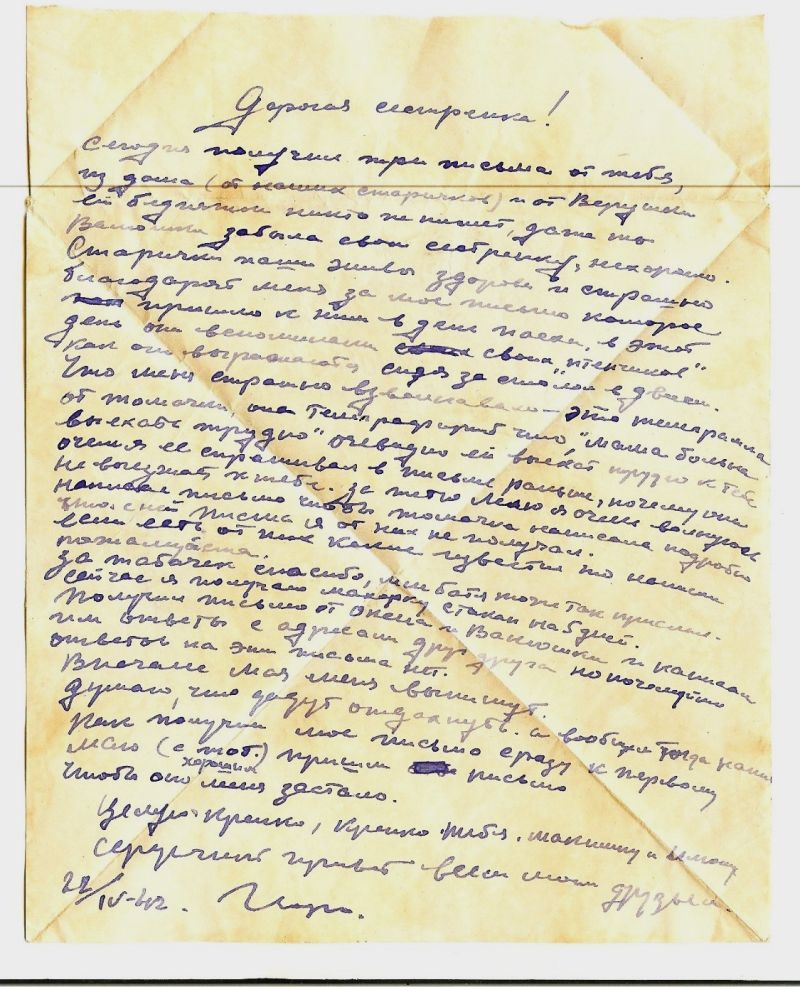 Дорогая сестренка!
Сегодня получил три письма от тебя,
из дома (от наших старичков) и от Верушки
ей бедняжки никто не пишет, даже ты
забыла свою сестренку, нехорошо.
Старички наши живы здоровы и страшно
благодарят меня за мое письмо которое
пришло к ним в день пасхи, в этот
день они вспоминали своих „птенчиков"
как они выражаются сидя за столом в двоем.
Что меня страшно взволновало – это телеграмма
от томочки, она телеграфирует что „мама больна
выехать трудно" очевидно ей выехать трудно к тебе
очем я ее спрашивал в письме раньше, почему они
не выезжают к тебе. За тетю я очень волнуюсь
написал письмо чтобы томочка написала подробно
что с ней писем я от них не получал.
если есть от них какие известия то напиши
пожалуйста.
За табачек спасибо, мне батя тоже так прислал.
сейчас я получаю махорку стакан на 6 дней.
Получил письмо от и Ванюшки и написал
им ответы с адресами друг друга но почему то
ответов на эти письма нет.
Вначале мая меня выпишут.
думаю, что дадут отдохнуть. а вообщем тогда
Как получишь мое письмо сразу к первому
маю (с тоб.) пришли письмо
хорошим
чтобы оно меня застало.
Целую крепко, крепко тебя. и
Сердечный привет всем моим друзьям.
IV-42.